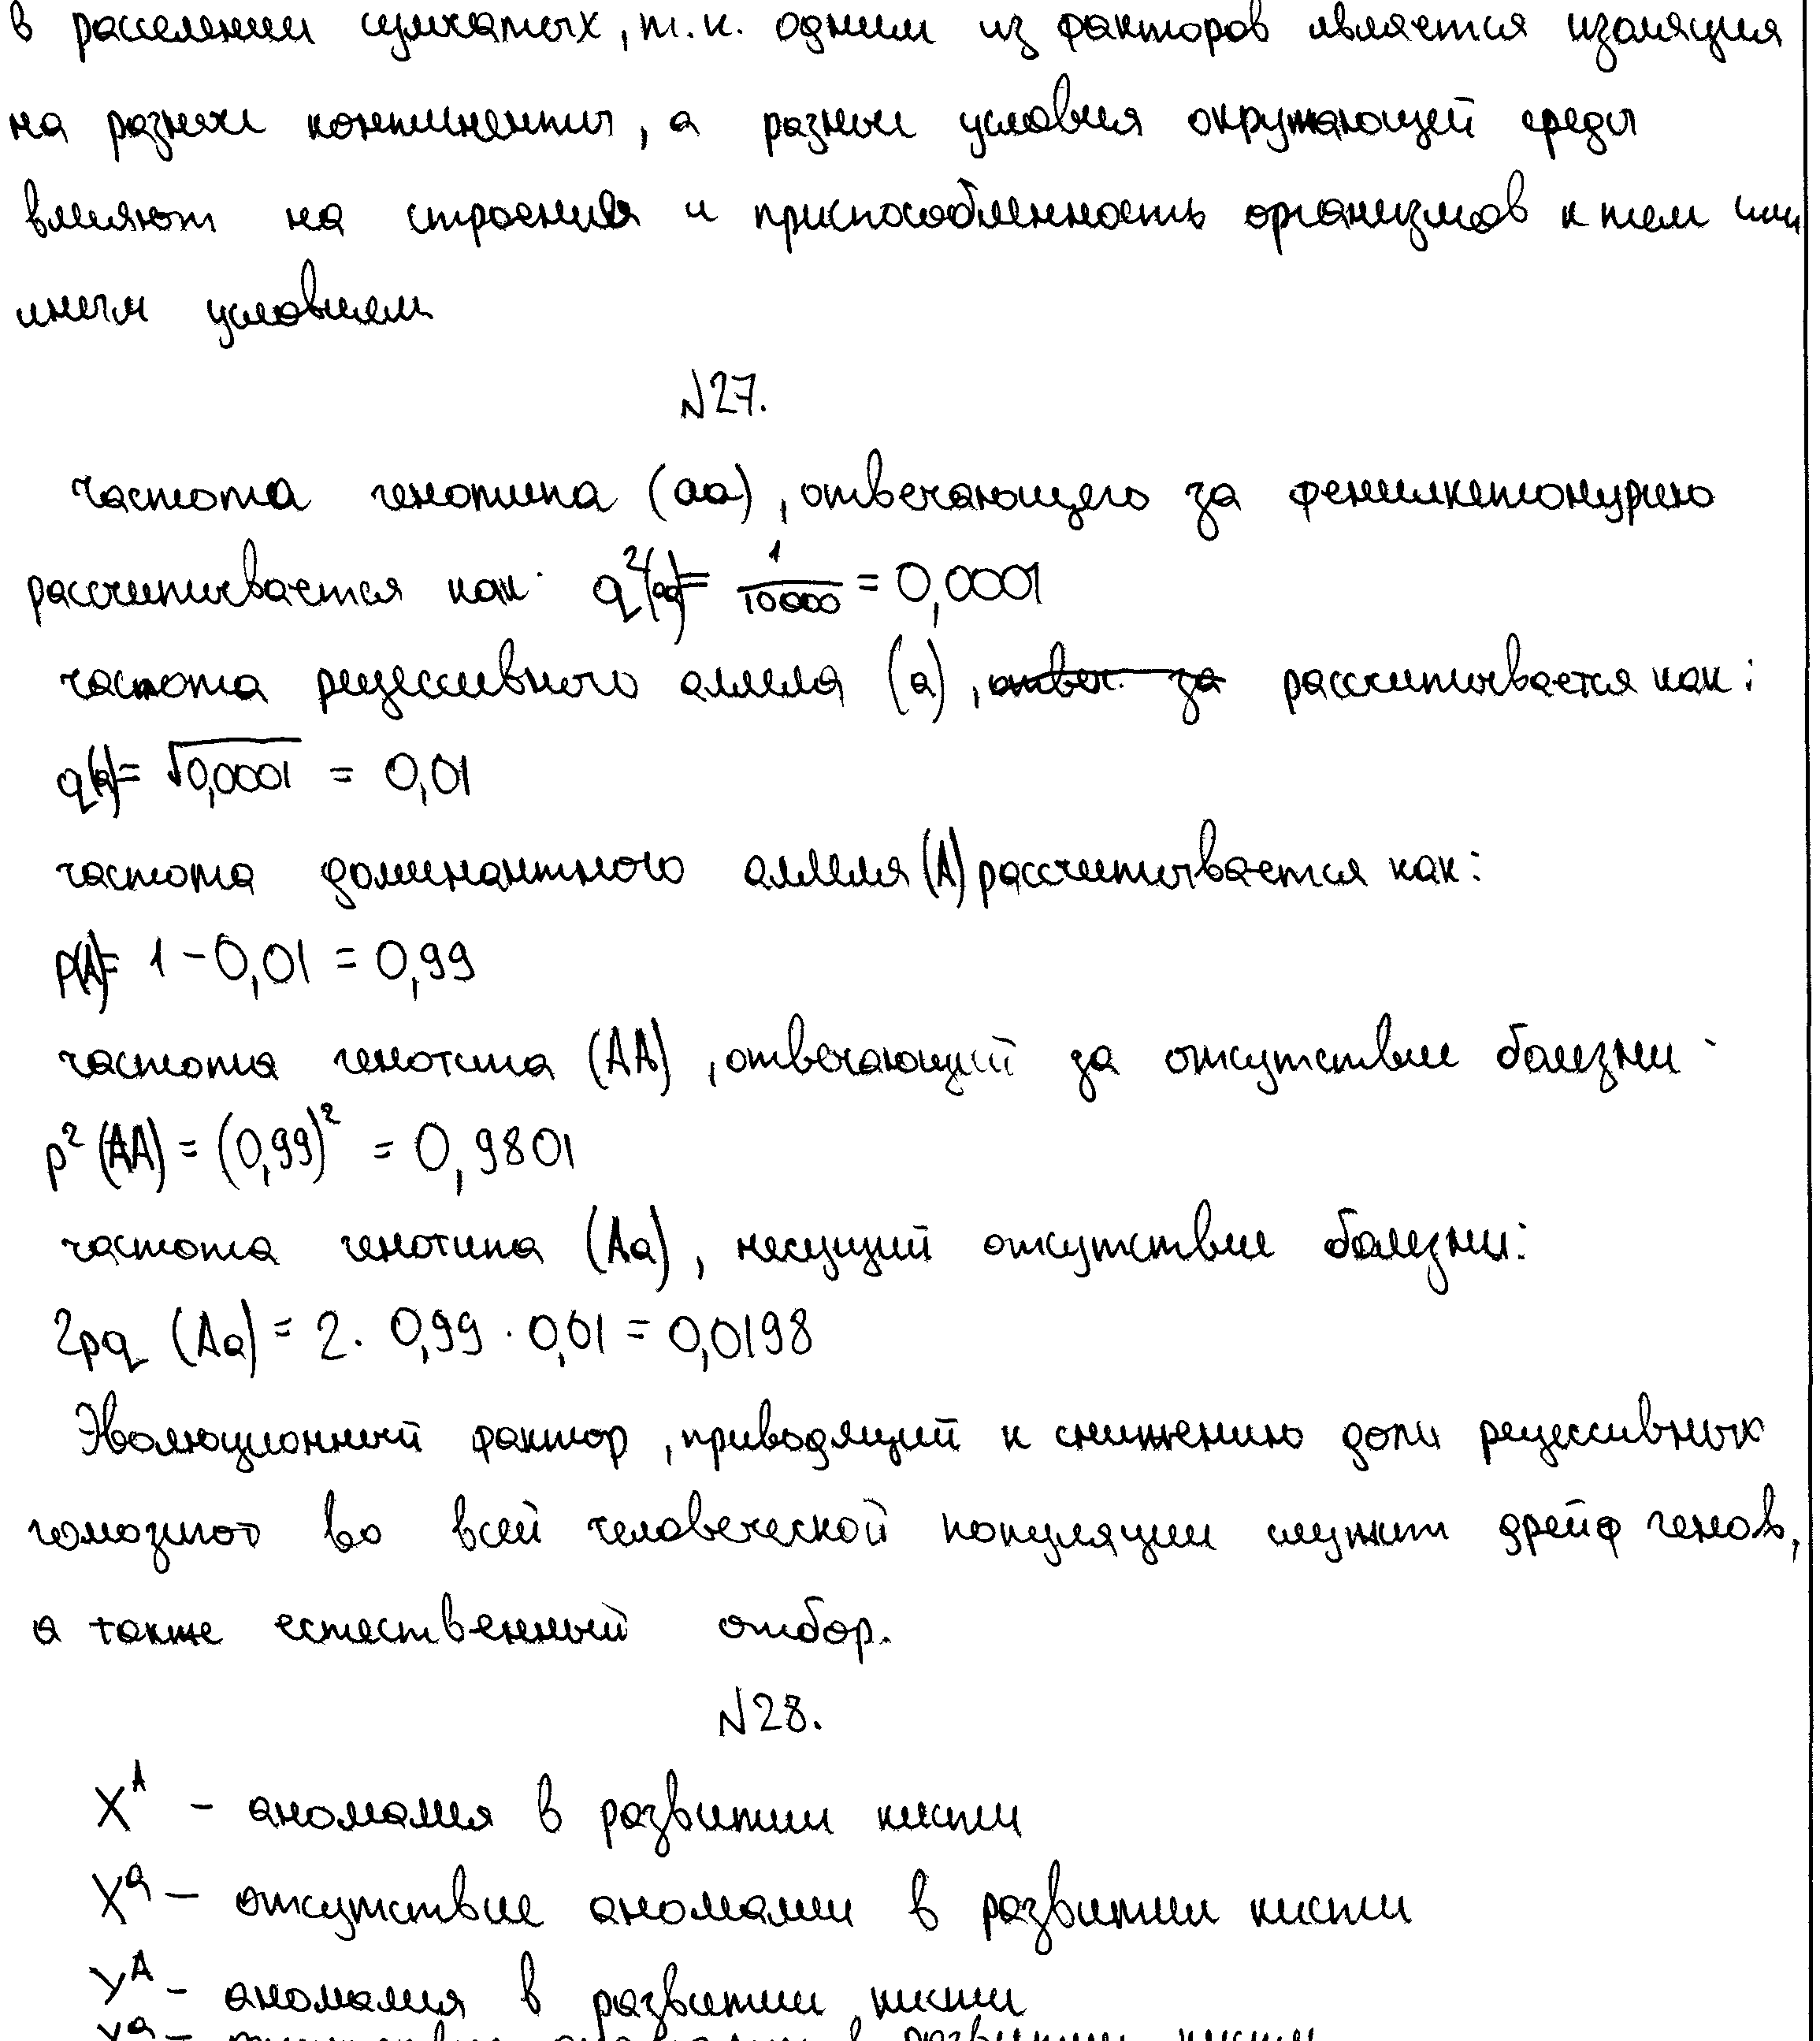 в расселении сумчатых, т.к. одним из факторов является изоляция
на разные континенты, а разные условия окружающей среды
влияют на строения и приспособленность организмов к тем или
иным условием
№27.
частота генотипа (аа), отвечающего за фенилкетонурию
рассчитывается как: q²(аа) = 1/10000 = 0,0001
частота рецессивного аллеля (а), отвеч. за рассчитывается как:
q(а) = √0,0001 = 0,01
частота доминантного аллеля (А) рассчитывается как:
p(А) = 1 - 0,01 = 0,99
частота генотипа (АА), отвечающий за отсутствие болезни -
p² (АА) = (0,99)² = 0,9801
частота генотипа (Аа), несущий отсутствие болезни:
2pq (Аа) = 2 · 0,99 · 0,01 = 0,0198
Эволюционный фактор, приводящий к снижению доли рецессивных
гомозигот во всей человеческой популяции служит дрейф генов,
а также естественный отбор.
№28.
Xᴬ - аномалия в развитии кисти
Xᵃ - отсутствие аномалии в развитии кисти
Yᴬ - аномалия в развитии кисти
Yᵃ - отсутствие аномалии в развитии кисти